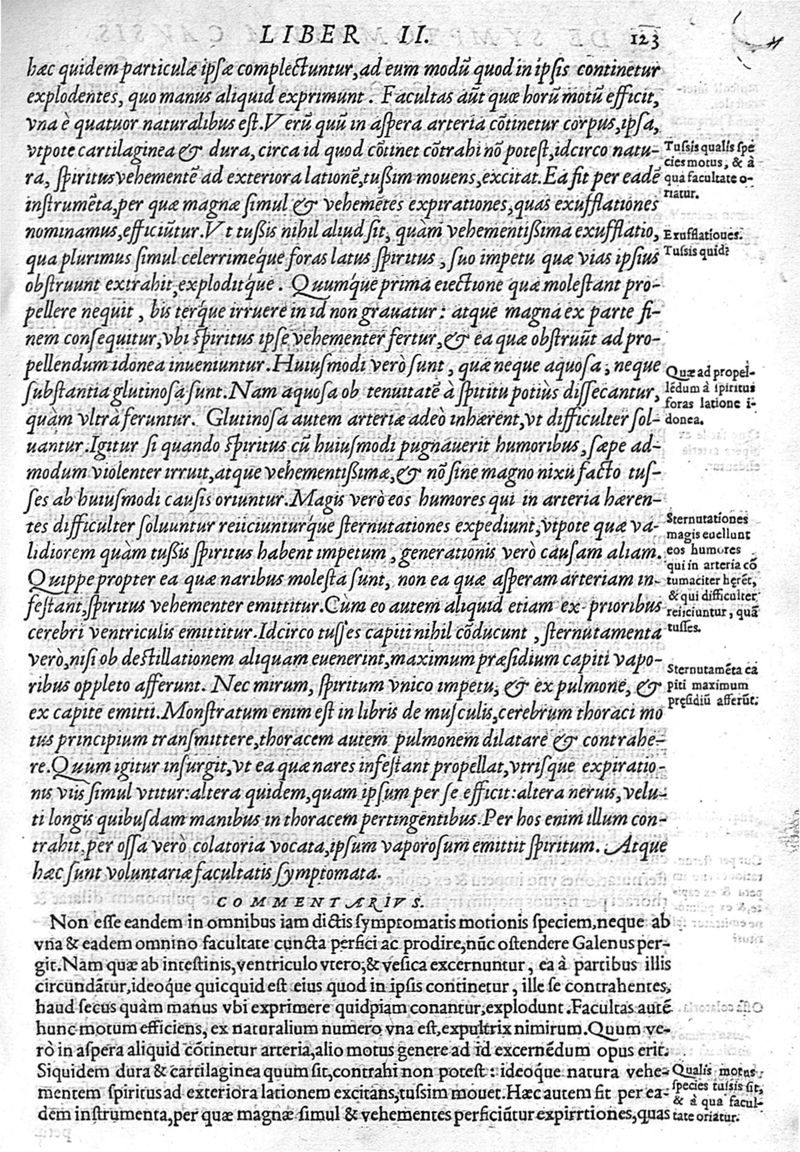 LIBER II. 123
hæc quidem particulæ ipsæ complectuntur, ad eum modũ quod in ipsis continetur
explodentes, quo manus aliquid exprimunt. Facultas aũt quæ horũ motũ efficit,
vna è quatuor naturalibus est. Verũ quũ in aspera arteria cõtinetur corpus, ipsa,
vtpote cartilaginea & dura, circa id quod cõtinet cõtrahi nõ potest, idcirco natu-
ra, spiritus vehementẽ ad exteriora lationẽ, tußim mouens, excitat. Ea fit per eadẽ
instrumẽta, per quæ magnæ simul & vehemẽtes expirationes, quas exufflationes
nominamus, efficiũtur. Vt tußis nihil aliud sit, quàm vehementißima exufflatio,
qua plurimus simul celerrimeq́ue foras latus spiritus, suo impetu quæ vias ipsius
obstruunt extrahit, exploditq́ue. Quumq́ue prima eiectione quæ molestant pro-
pellere nequit, bis terq́ue irruere in id non grauatur: atque magna ex parte fi-
nem consequitur, vbi spiritus ipse vehementer fertur, & ea quæ obstruũt ad pro-
pellendum idonea inueniuntur. Huiusmodi verò sunt, quæ neque aquosa, neque
substantia glutinosa sunt. Nam aquosa ob tenuitatẽ à spititu potius dissecantur,
quàm vltrà feruntur. Glutinosa autem arteriæ adeò inhærent, vt difficulter sol-
uantur. Igitur si quando spiritus cũ huiusmodi pugnauerit humoribus, sæpe ad-
modum violenter irruit, atque vehementißimæ, & nõ sine magno nixu facto tus-
ses ab huiusmodi causis oriuntur. Magis verò eos humores qui in arteria hæren-
tes difficulter soluuntur reiiciunturq́ue sternutationes expediunt, vtpote quæ va-
lidiorem quàm tußis spiritus habent impetum, generationis verò causam aliam.
Quippe propter ea quæ naribus molesta sunt, non ea quæ asperam arteriam in-
festant, spiritus vehementer emittitur. Cùm eo autem aliquid etiam ex prioribus
cerebri ventriculis emittitur. Idcirco tusses capiti nihil cõducunt, sternutamenta
verò, nisi ob destillationem aliquam euenerint, maximum præsidium capiti vapo-
ribus oppleto afferunt. Nec mirum, spiritum vnico impetu, & ex pulmone, &
ex capite emitti. Monstratum enim est in libris de musculis, cerebrum thoraci mo
tus principium transmittere, thoracem autem pulmonem dilatare & contrahe-
re. Quum igitur insurgit, vt ea quæ nares infestant propellat, vtrisque expiratio-
nis viis simul vtitur: altera quidem, quam ipsum per se efficit: altera neruis, velu-
ti longis quibusdam manibus in thoracem pertingentibus. Per hos enim illum con-
trahit, per ossa verò colatoria vocata, ipsum vaporosum emittit spiritum. Atque
hæc sunt voluntariæ facultatis symptomata.
COMMENTARIVS.
Non esse eandem in omnibus iam dictis symptomatis motionis speciem, neque ab
vna & eadem omnino facultate cuncta perfici ac prodire, nũc ostendere Galenus per-
git. Nam quæ ab intestinis, ventriculo vtero, & vesica excernuntur, ea à partibus illis
circundãtur, ideoq́ue quicquid est eius quod in ipsis continetur, ille se contrahentes,
haud secus quàm manus vbi exprimere quidpiam conantur, explodunt. Facultas autẽ
hunc motum efficiens, ex naturalium numero vna est, expultrix nimirum. Quum ve-
rò in aspera aliquid cõtinetur arteria, alio motus genere ad id excernẽdum opus erit.
Siquidem dura & cartilaginea quum sit, contrahi non potest: ideoque natura vehe-
mentem spiritus ad exteriora lationem excitans, tussim mouet. Hæc autem fit per ea-
dem instrumenta, per quæ magnæ simul & vehementes perficiũtur expirrtiones, quas
Tussis qualis spe
cies motus, & à
qua facultate o-
riatur.
Exufflationes.
Tussis quid?
Quæ ad propel-
lẽdum à spiritus
foras latione i-
donea.
Sternutationes
magis euellunt
eos humores
qui in arteria cõ
tumaciter hærẽt,
& qui difficulter
reiiciuntur, quã
tusses.
Sternutamẽta ca
piti maximum
pręsidiũ afferũt.
Qualis motus
species tussis sit,
& à qua facul-
tate oriatur.